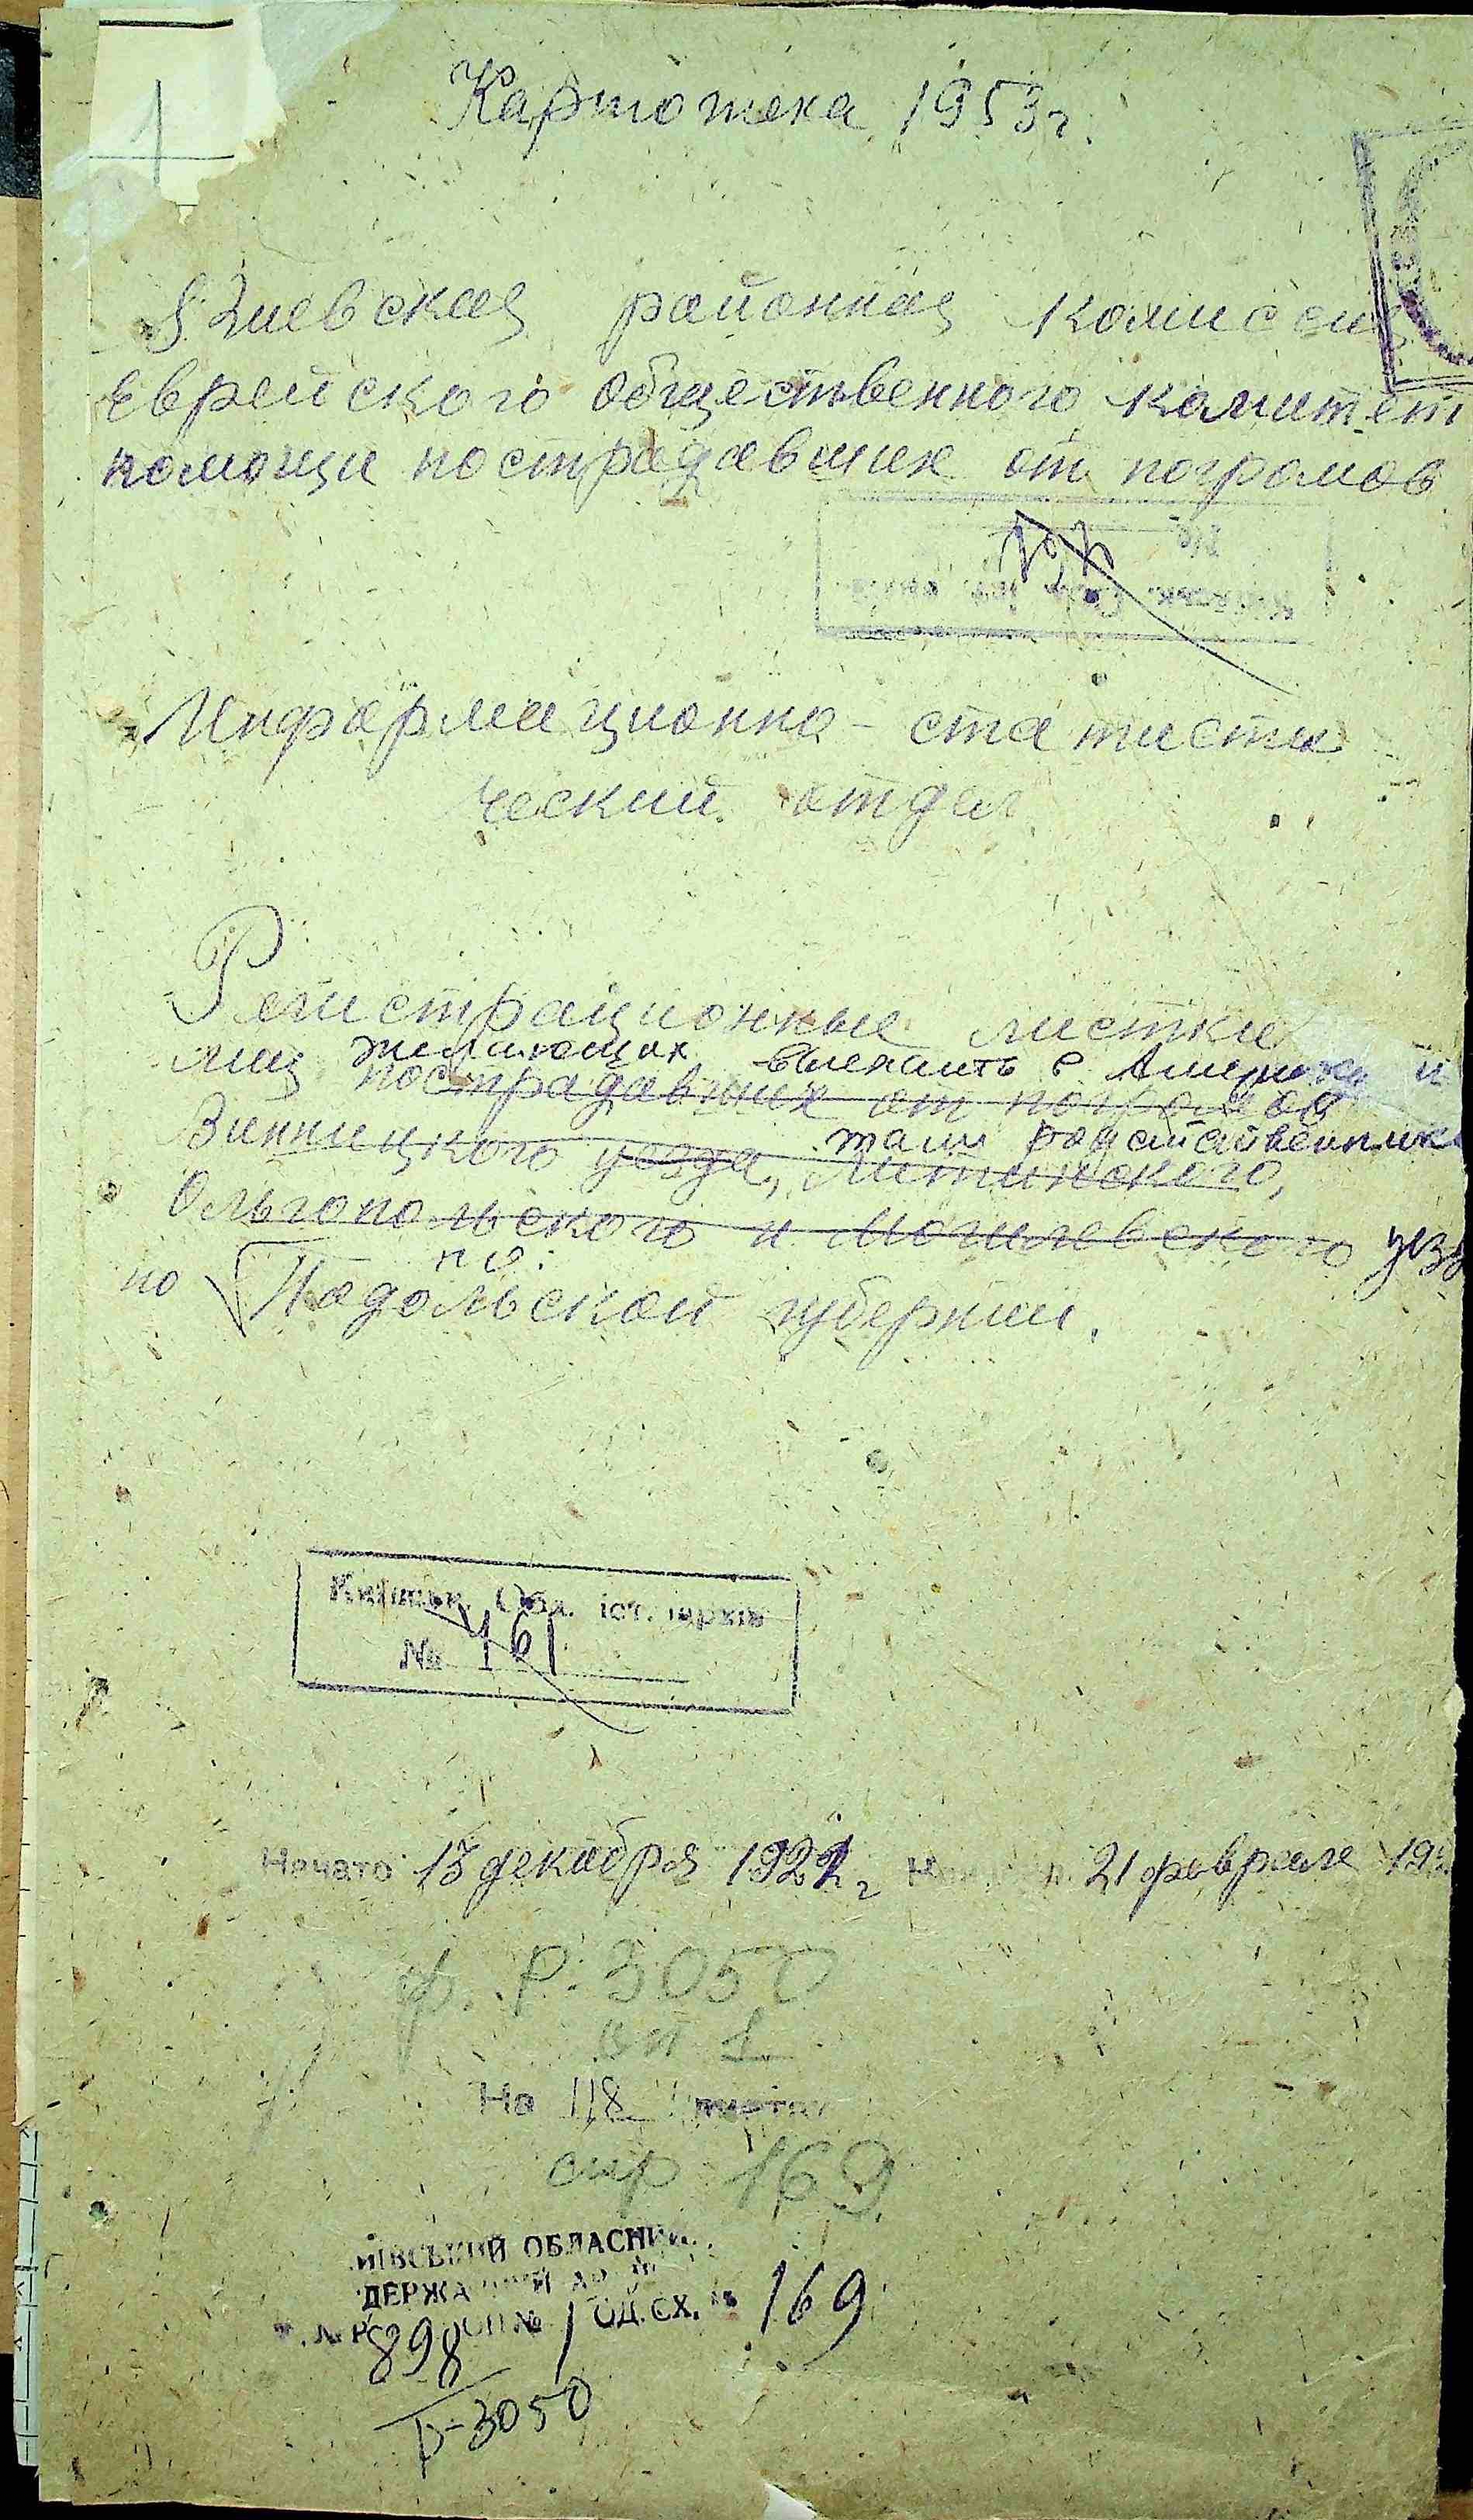 1
Картотека 1953 г.
Киевская районная комиссия
Еврейского общественного комитет
помощи пострадавшик от погромов
Информационно-статисти
ческий отдел
Регистрационные листки
лиц желающих выехать в Америку и
пострадавших от погромов
тами родственник
Винницкого уезда, Литинского,
Ольгопольского и Могилевского уезд
по:
по Подольской губернии.
Київськ. Обл. іст. архів
№ 161
Начато 13 декабря 1921 г 21 февраля 192
ф. Р. 3050
оп 1
На 118 листах
спр 169
ИЇВСЬКИЙ ОБЛАСНИЙ
ДЕРЖА
Р 898 ОП № 1 ОД. СХ. № 169
Р-3050